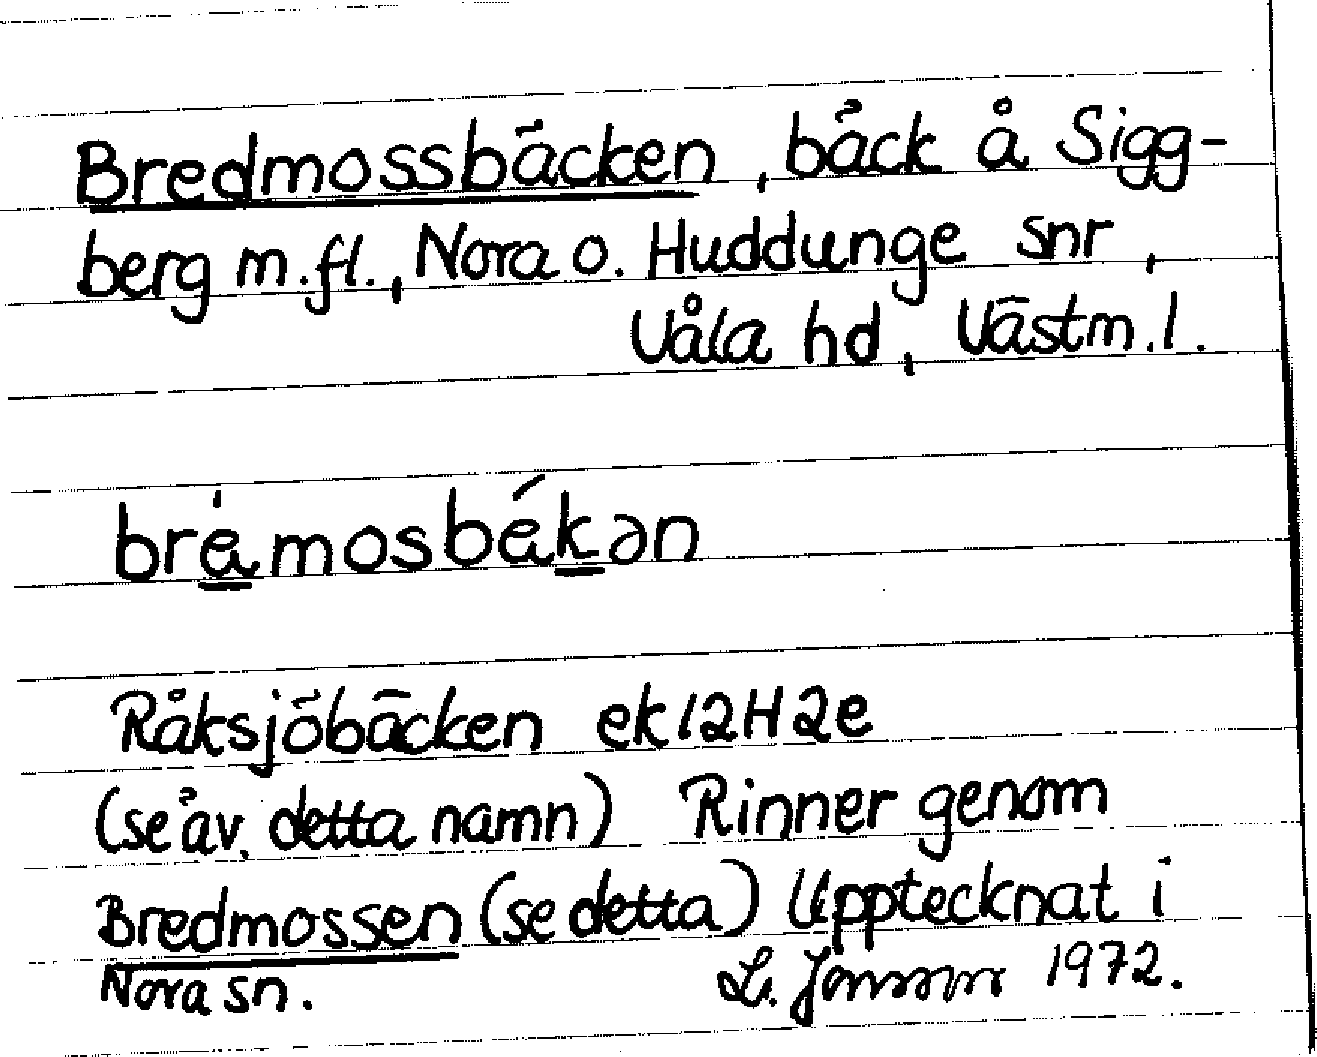 Bredmossbäcken, bäck å Sigg-
berg m.fl., Nora o. Huddunge snr,
Våla hd, Västm.l.
bræ̀mosbǽkən
Råksjöbäcken ek 12H2e
(se äv. detta namn) Rinner genom
Bredmossen (se detta) Upptecknat i
Nora sn. L. Jonsson 1972.